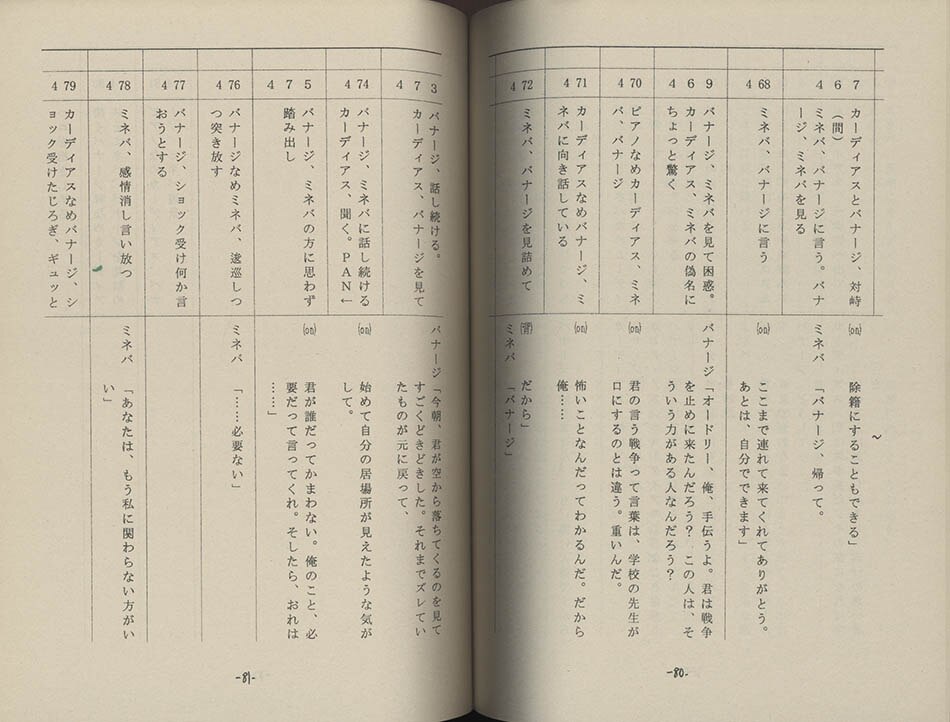 467
カーディアスとバナージ、対峙
(間)
ミネバ、バナージに言う。バナ
ージ、ミネバを見る
(on) 除籍にすることもできる」
ミネバ 「バナージ、帰って。
468
ミネバ、バナージに言う
(on) ここまで連れて来てくれてありがとう。
あとは、自分でできます」
469
バナージ、ミネバを見て困惑。
カーディアス、ミネバの偽名に
ちょっと驚く
バナージ「オードリー、俺、手伝うよ。君は戦争
を止めに来たんだろう? この人は、そ
ういう力がある人なんだろう?
470
ピアノなめカーディアス、ミネ
バ、バナージ
(on) 君の言う戦争って言葉は、学校の先生が
口にするのとは違う。重いんだ。
471
カーディアスなめバナージ、ミ
ネバに向き話している
(on) 怖いことなんだってわかるんだ。だから
俺……
472
ミネバ、バナージを見詰めて
(背) だから」
ミネバ 「バナージ」
-80-
473
バナージ、話し続ける。
カーディアス、バナージを見て
バナージ「今朝、君が空から落ちてくるのを見て
すごくどきどきした。それまでズレてい
たものが元に戻って、
474
バナージ、ミネバに話し続ける
カーディアス、聞く。PAN←
(on) 始めて自分の居場所が見えたような気が
して。
475
バナージ、ミネバの方に思わず
踏み出し
(on) 君が誰だってかまわない。俺のこと、必
要だって言ってくれ。そしたら、おれは
……」
476
バナージなめミネバ、逡巡しつ
つ突き放す
ミネバ 「……必要ない」
477
バナージ、ショック受け何か言
おうとする
478
ミネバ、感情消し言い放つ
ミネバ 「あなたは、もう私に関わらない方がい
い」
479
カーディアスなめバナージ、シ
ョック受けたじろぎ、ギュッと
-81-